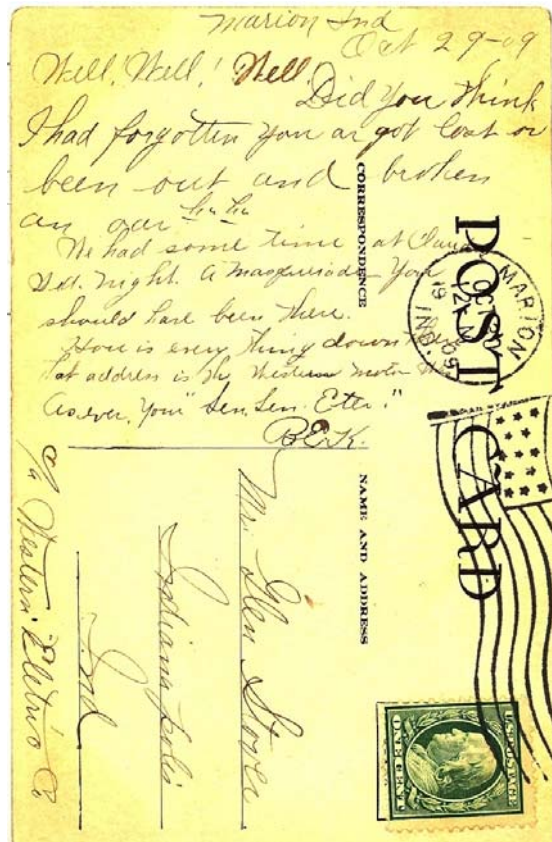 Marion Ind
Oct 29-09
Well! Well! Well!
Did you think
I had forgotten you or got lost or
been out and broken
an oar ha ha
We had some time at
night. A masquerade You
should have been there.
How is every thing down
at address is the Western Motor
As ever, Your "Sen. Sen. Etta."
B.E.K.
CORRESPONDENCE
POST CARD
MARION
IND.
OCT 30
12 M
1909
NAME AND ADDRESS
Mr. Glen Stover
Indianapolis
Ind
c/o Western Eletric Co.
U.S. POSTAGE
ONE CENT